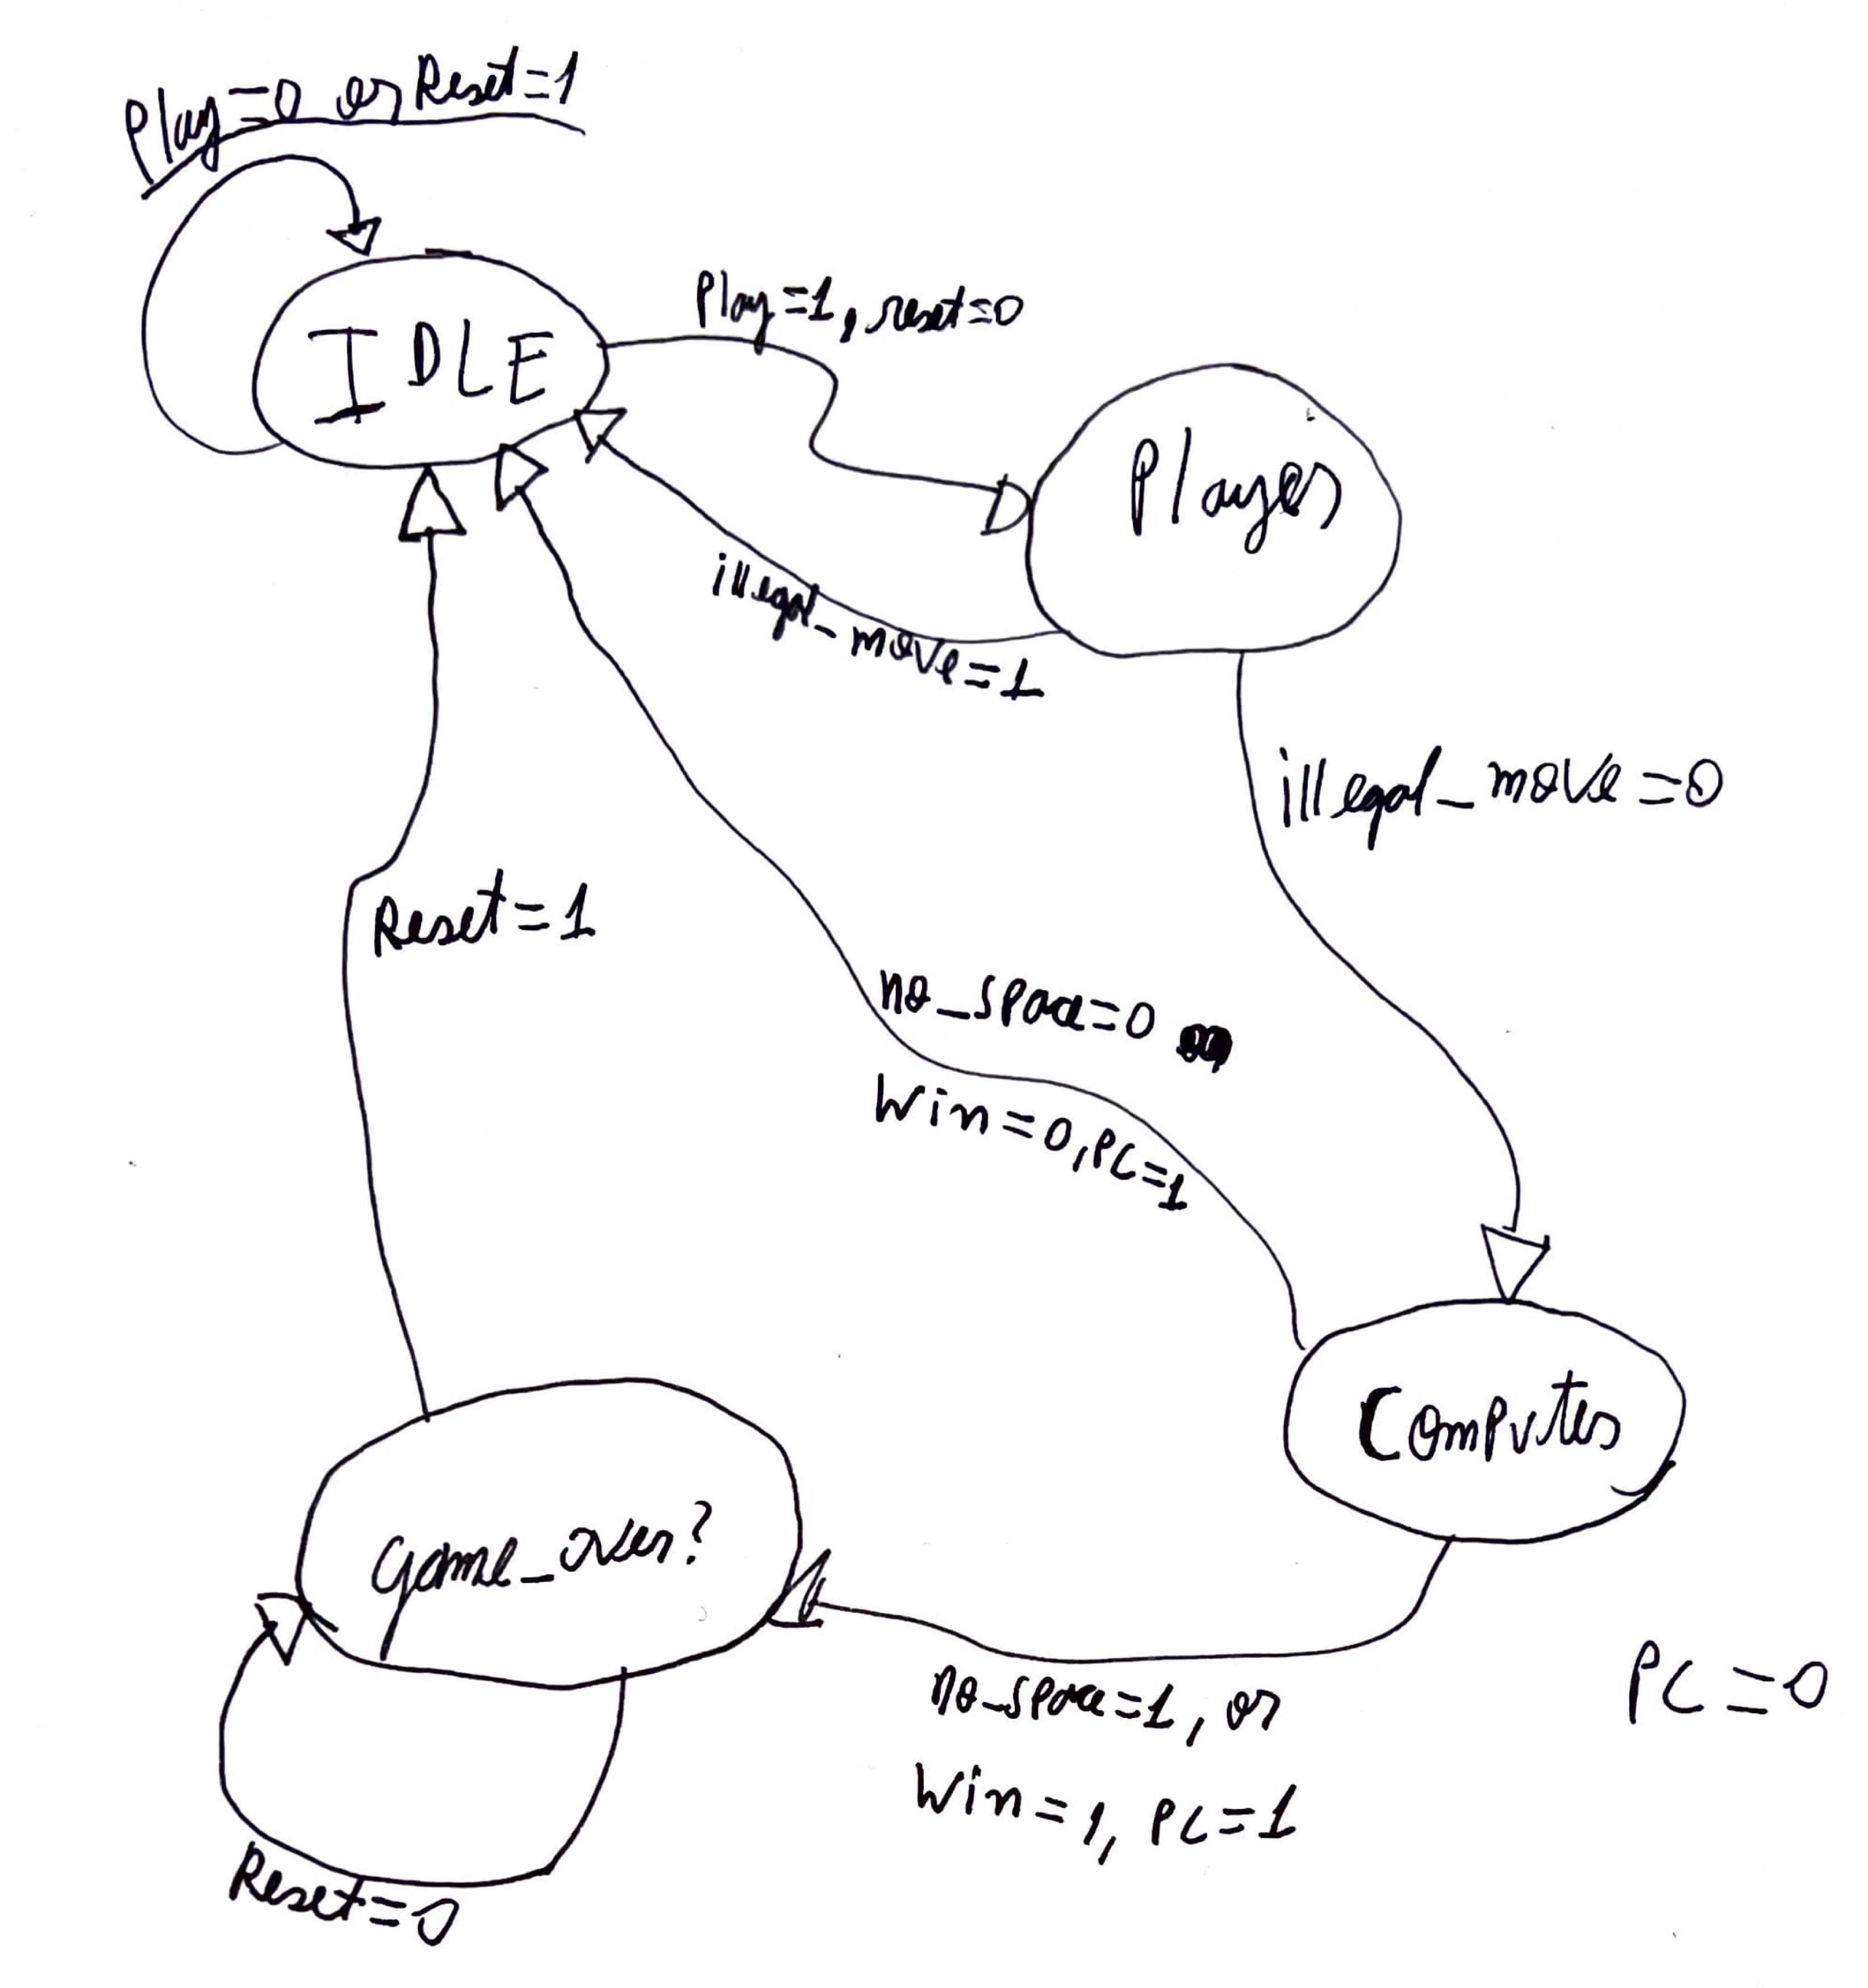 Play=0 or Reset=1
IDLE
Play=1, reset=0
Player
illegal_move=1
illegal_move=0
Reset=1
no_space=0
Win=0, PC=1
Computer
game_over?
no_space=1, or
Win=1, PC=1
PC=0
Reset=0